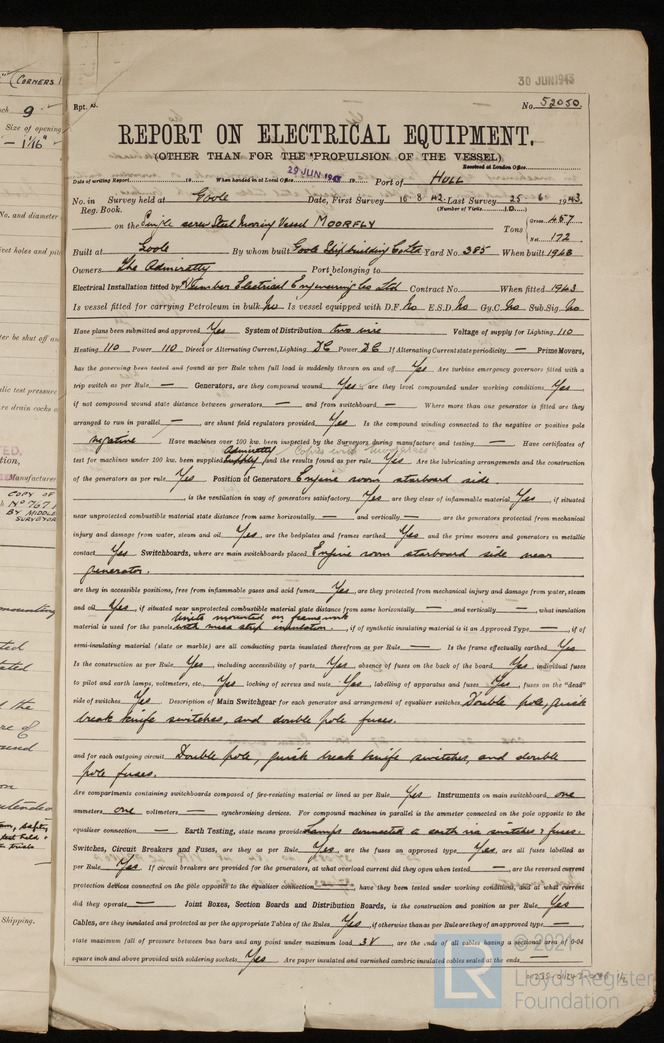 (CORNERS
9
Size of opening
1/16"
No. and diameter
test pressure
Manufacturer
COPY OF
No 767
BY MIDDLE
SURVEYOR
Shipping.
30 JUN 1943
Rpt.
No. 52050.
REPORT ON ELECTRICAL EQUIPMENT.
(OTHER THAN FOR THE PROPULSION OF THE VESSEL)
Received at London Office
Date of writing Report 19 When handed in at Local Office 29 JUN 19 Port of HULL
No. in Survey held at Goole Date, First Survey 8 42. Last Survey 25 6 1943
Reg. Book. (Number of Visits 10 )
on the Single screw Steel Mooring Vessel MOORFLY Tons Gross 457
Net 172
Built at Goole By whom built Goole Shipbuilding Co Ltd Yard No. 385 When built 1943
Owners The Admiralty Port belonging to
Electrical Installation fitted by Humber Electrical Engineering Co Ltd Contract No. When fitted 1943
Is vessel fitted for carrying Petroleum in bulk No Is vessel equipped with D.F. No E.S.D. No Gy.C. No Sub.Sig. No
Have plans been submitted and approved Yes System of Distribution two wire Voltage of supply for Lighting 110
Heating 110 Power 110 Direct or Alternating Current, Lighting DC Power DC If Alternating Current state periodicity — Prime Movers,
has the governing been tested and found as per Rule when full load is suddenly thrown on and off Yes Are turbine emergency governors fitted with a
trip switch as per Rule — Generators, are they compound wound Yes, are they level compounded under working conditions Yes,
if not compound wound state distance between generators — and from switchboard — Where more than one generator is fitted are they
arranged to run in parallel —, are shunt field regulators provided Yes Is the compound winding connected to the negative or positive pole
negative Have machines over 100 kw. been inspected by the Surveyors during manufacture and testing — Have certificates of
Admiralty
test for machines under 100 kw. been supplied and the results found as per rule Yes Are the lubricating arrangements and the construction
of the generators as per rule Yes Position of Generators Engine room starboard side
, is the ventilation in way of generators satisfactory Yes, are they clear of inflammable material Yes, if situated
near unprotected combustible material state distance from same horizontally — and vertically —, are the generators protected from mechanical
injury and damage from water, steam and oil Yes, are the bedplates and frames earthed Yes and the prime movers and generators in metallic
contact Yes Switchboards, where are main switchboards placed Engine room starboard side near
generator.
are they in accessible positions, free from inflammable gases and acid fumes Yes, are they protected from mechanical injury and damage from water, steam
and oil Yes, if situated near unprotected combustible material state distance from same horizontally — and vertically —, what insulation
Units mounted on framework
material is used for the panels with mica strip insulation, if of synthetic insulating material is it an Approved Type —, if of
semi-insulating material (slate or marble) are all conducting parts insulated therefrom as per Rule — Is the frame effectually earthed Yes
Is the construction as per Rule Yes, including accessibility of parts Yes, absence of fuses on the back of the board Yes, individual fuses
to pilot and earth lamps, voltmeters, etc. Yes locking of screws and nuts Yes, labelling of apparatus and fuses Yes, fuses on the "dead"
side of switches Yes Description of Main Switchgear for each generator and arrangement of equaliser switches Double pole, quick
break knife switches, and double pole fuses.
and for each outgoing circuit Double pole, quick break knife switches, and double
pole fuses.
Are compartments containing switchboards composed of fire-resisting material or lined as per Rule Yes Instruments on main switchboard one
ammeters one voltmeters — synchronising devices. For compound machines in parallel is the ammeter connected on the pole opposite to the
equaliser connection — Earth Testing, state means provided Lamps connected to earth via switches & fuses.
Switches, Circuit Breakers and Fuses, are they as per Rule Yes, are the fuses an approved type Yes, are all fuses labelled as
per Rule Yes If circuit breakers are provided for the generators, at what overload current did they open when tested —, are the reversed current
protection devices connected on the pole opposite to the equaliser connection —, have they been tested under working conditions, and at what current
did they operate — Joint Boxes, Section Boards and Distribution Boards, is the construction and position as per Rule Yes
Cables, are they insulated and protected as per the appropriate Tables of the Rules Yes, if otherwise than as per Rule are they of an approved type —,
state maximum fall of pressure between bus bars and any point under maximum load 3V, are the ends of all cables having a sectional area of 0·04
square inch and above provided with soldering sockets Yes Are paper insulated and varnished cambric insulated cables sealed at the ends —
© 2021
LR
Lloyd's Register
Foundation